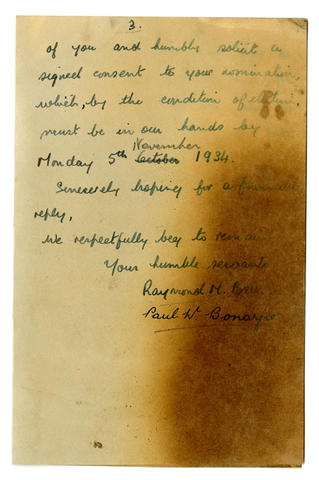 3.
of you and humbly solicit a
signed consent to your nomination,
which, by the condition of election,
must be in our hands by
November
Monday 5th October 1934.
Sincerely hoping for a favourable
reply,
We respectfully beg to remain
Your humble servants
Raymond M.
Paul W.